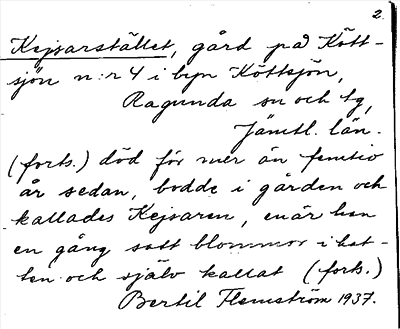 2.
Kejsarstället, gård på Kött-
sjön n:r 4 i byn Köttsjön,
Ragunda sn och tg,
Jämtl. län.
(forts.) död för mer än femtio
år sedan, bodde i gården och
kallades Kejsaren, enär han
en gång satt blommor i hat-
ten och själv kallat (forts.)
Bertil Flemström 1937.